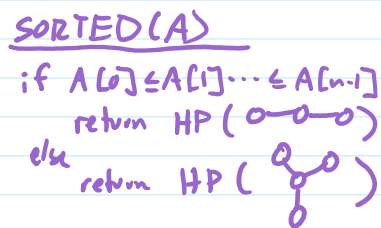 SORTED(A)
if A[0]≤A[1]...≤A[n-1]
return HP( )
else
return HP( )